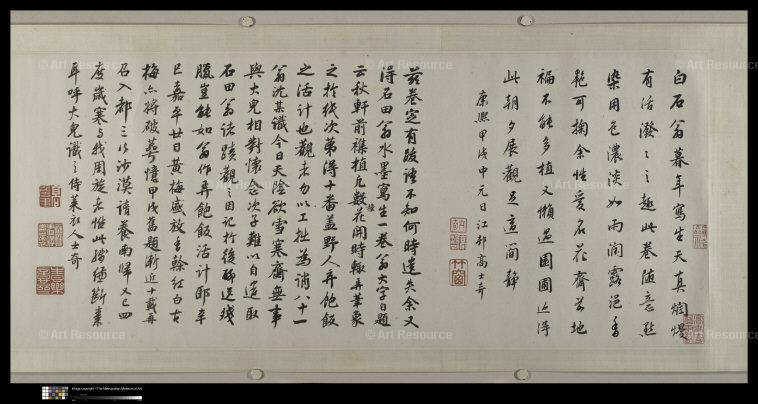 白石翁暮年寫生天真爛熳
有活潑潑之趣此卷隨意點
染用色濃淡如雨潤露浥香
艷可掬余性愛名花齋前地
褊不能多植又懶過園圃近得
此朝夕展觀足適閒靜
康熙甲戌中元日江邨高士奇
茲卷定有跋語不知何時遺失余又
得石田翁水墨寫生一卷翁大字自題
云秋軒前襍植凡數種花開時輒弄筆象
之於紙次第得十番盖野人弄飽飯
之活計也觀者勿以工拙為誚八十一
翁沈某識今日天陰欲雪寒齋無事
與大兒相對懷念次子難以自遣取
石田翁諸蹟觀之因記於後聊送殘
臘豈能如翁作弄飽飯活計耶辛
巳嘉平廿日黃梅盛放玉紅白古
梅亦將破萼憶甲戌舊題漸近十載再
召入都三以沙漠請養南歸又已四
度歲寒與我周旋者惟此縑斷素
耳呼大兒識之侍萊衣人士奇
© Art Resource
© Art Resource
© Art Resource
© Art Resource
© Art Resource
© Art Resource
© Art Resource
© Art Resource
Image copyright The Metropolitan Museum of Art